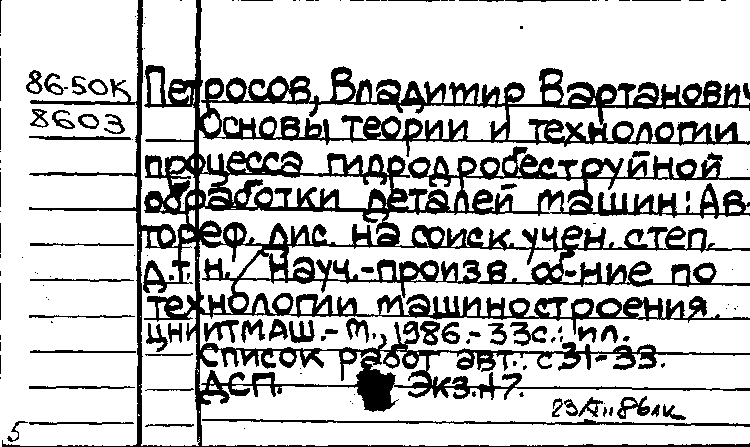 86-50К Петросов, Владимир Вартанович
8603 Основы теории и технологии
процесса гидродробеструйной
обработки деталей машин: Ав-
тореф. дис. на соиск. учен. степ.
д.т.н. / Науч.-произв. об-ние по
технологии машиностроения.
ЦНИИТМАШ. - М., 1986. - 33с.: ил.
Список работ авт.: с 31-33.
ДСП. Экз.
5